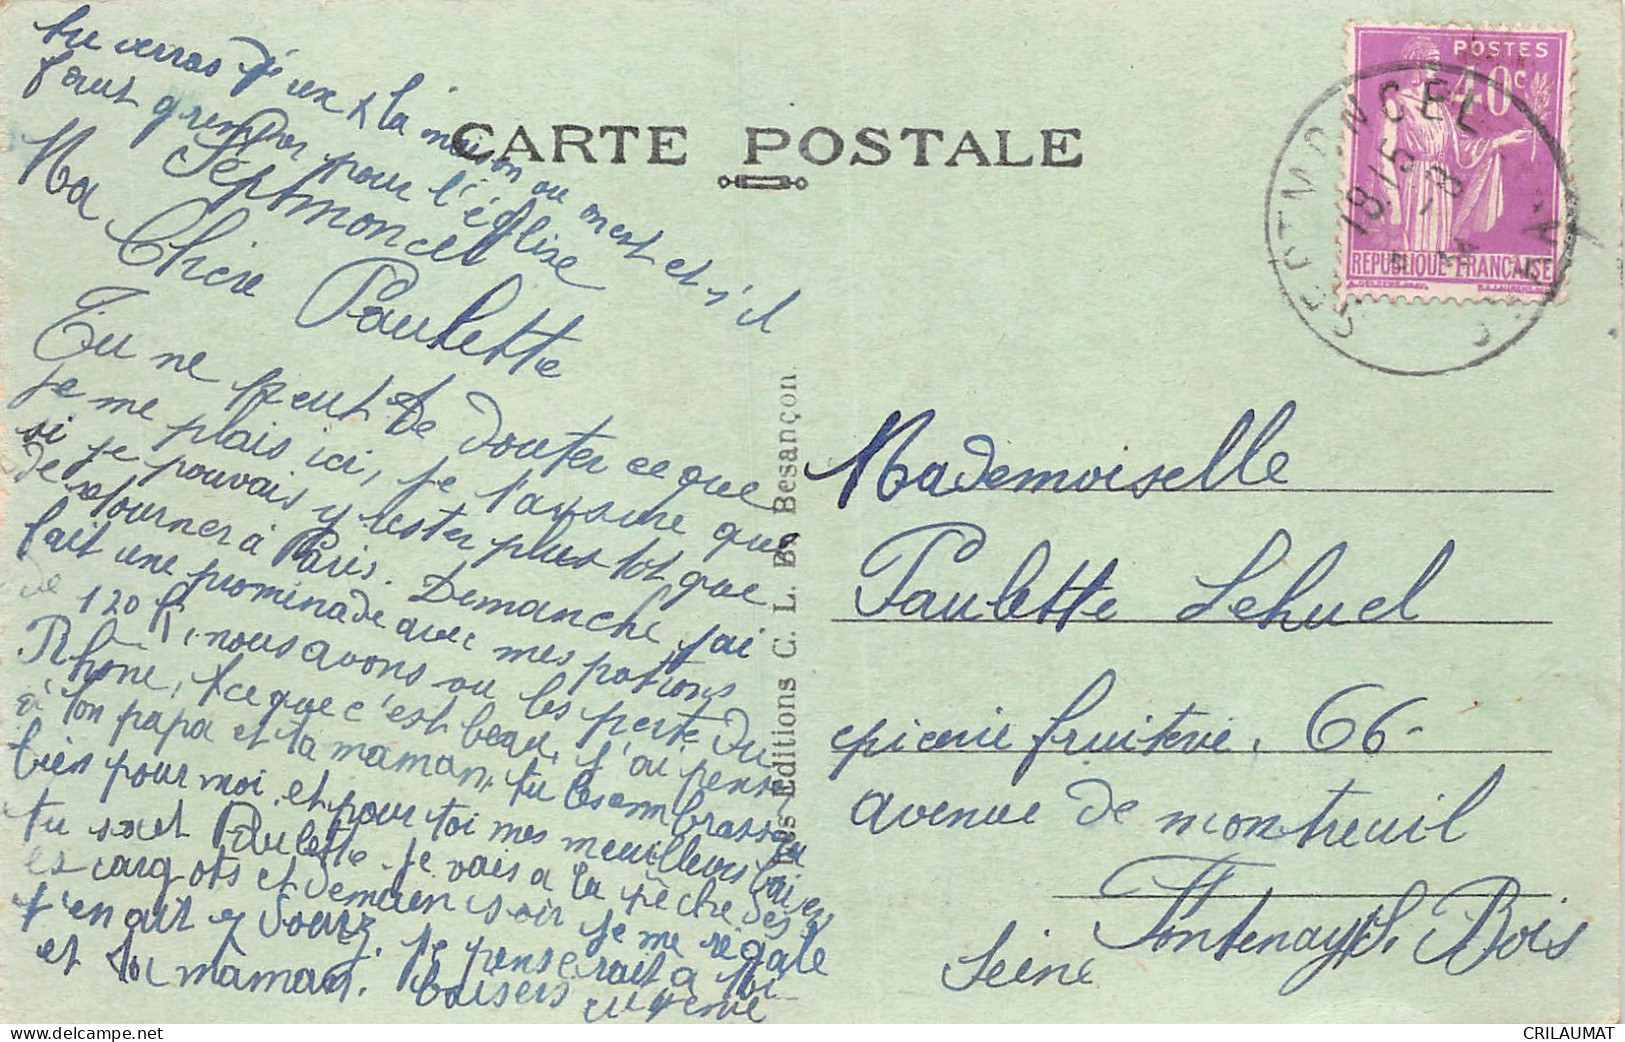 tu verras d'ux la maison ou on est et s'il
faut grimper pour l'église
Septmoncel
CARTE POSTALE
Ma Chère Paulette
Tu ne peut te douter ce que
je me plais ici, je t'assure que
si je pouvais y rester plus tot que
de retourner à Paris. Demanche, j'ai
fait une promenade avec mes patrons
de 120 K, nous avons vu les perte du
Rhône, ce que c'est beau, j'ai pensé
à ton papa et ta maman, tu les embrassera
bien pour moi, et pour toi mes meuilleurs baisers
tu sxet Paulette je vais a la pêche des
escargots et demain soir je me régale
et ta maman. baisers
POSTES
40c
REPUBLIQUE FRANÇAISE
SEPTMONCEL
18 15
-8
JURA
Mademoiselle
Paulette Lehuel
epicerie fruiterie, 66-
avenue de montreuil
Fontenay s/s Bois
Seine
Les Editions C. L. B. Besançon
CRILAUMAT